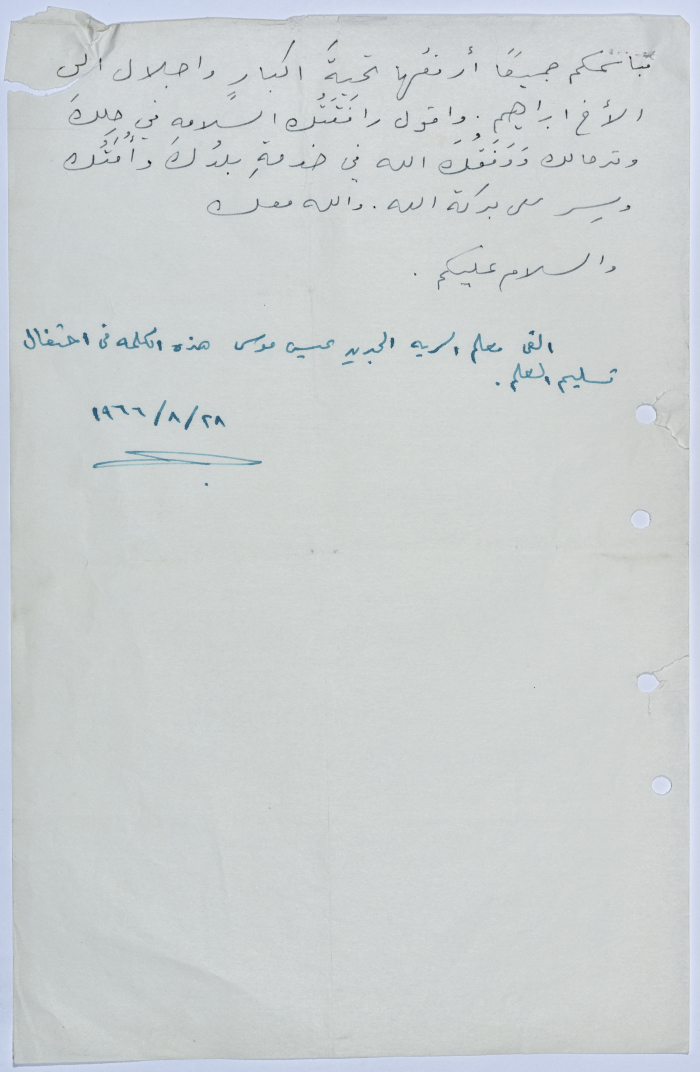 فباسمكم جميعًا أرفعُها تحيةَّ اكبارٍ واجلال الى
الأخ ابراهيم . واقول رافَقَتْك السلامه في حِلِكَ
وترحالك وَوَفَقَكَ الله في خدمةِ بلدِكَ وأُمَتُّك
وسِر على بركة الله . والله معك
والسلام عليكم .
القى معلم السريه الجديد عيسى موسى هذه الكلمه في احتفال
تسليم العلم .
٢٨/٨/١٩٦٦